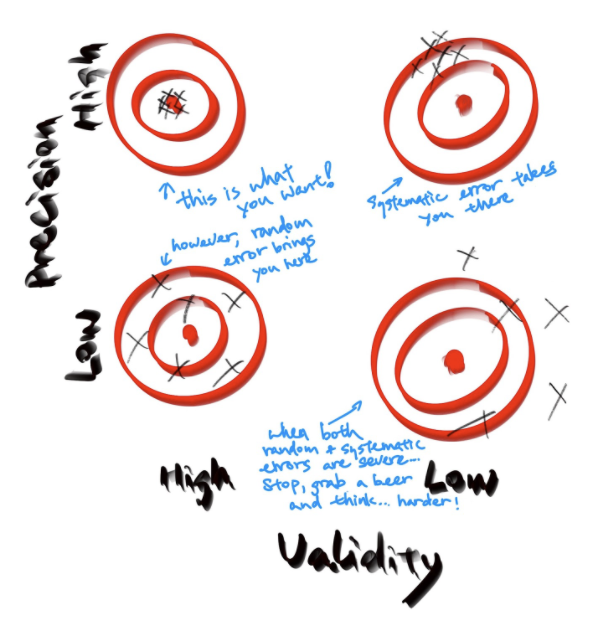 Precision
High
this is what
you want!
Systematic error takes
you there
however, random
error brings
you here
Low
when both
random + systematic
errors are severe...
Stop, grab a beer
and think... harder!
High
Low
Validity